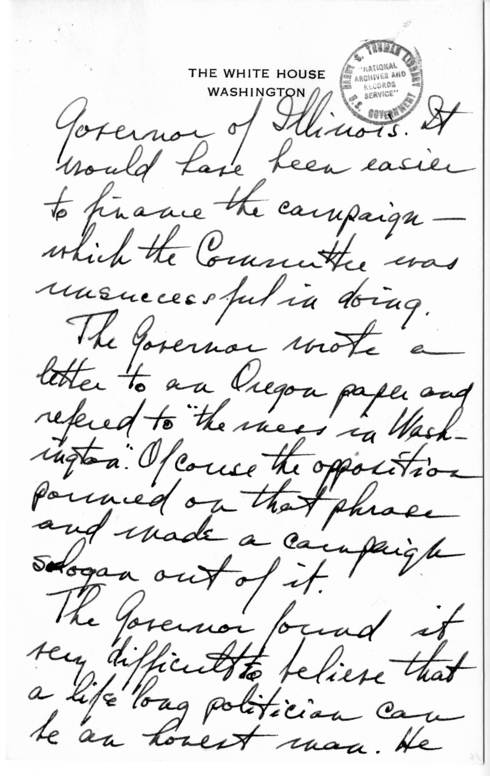 THE WHITE HOUSE
WASHINGTON
HARRY S. TRUMAN LIBRARY
"NATIONAL
ARCHIVES AND
RECORDS
SERVICE"
U.S. GOVERNMENT
Governor of Illinois. It
would have been easier
to finance the campaign —
which the Committee was
unsuccessful in doing.
The Governor wrote a
letter to an Oregon paper and
refered to "the mess in Wash-
ington". Of couse the opposition
pounced on that phrase
and made a campaign
slogan out of it.
The Governor found it
very difficult to believe that
a life long politician can
be an honest man. He